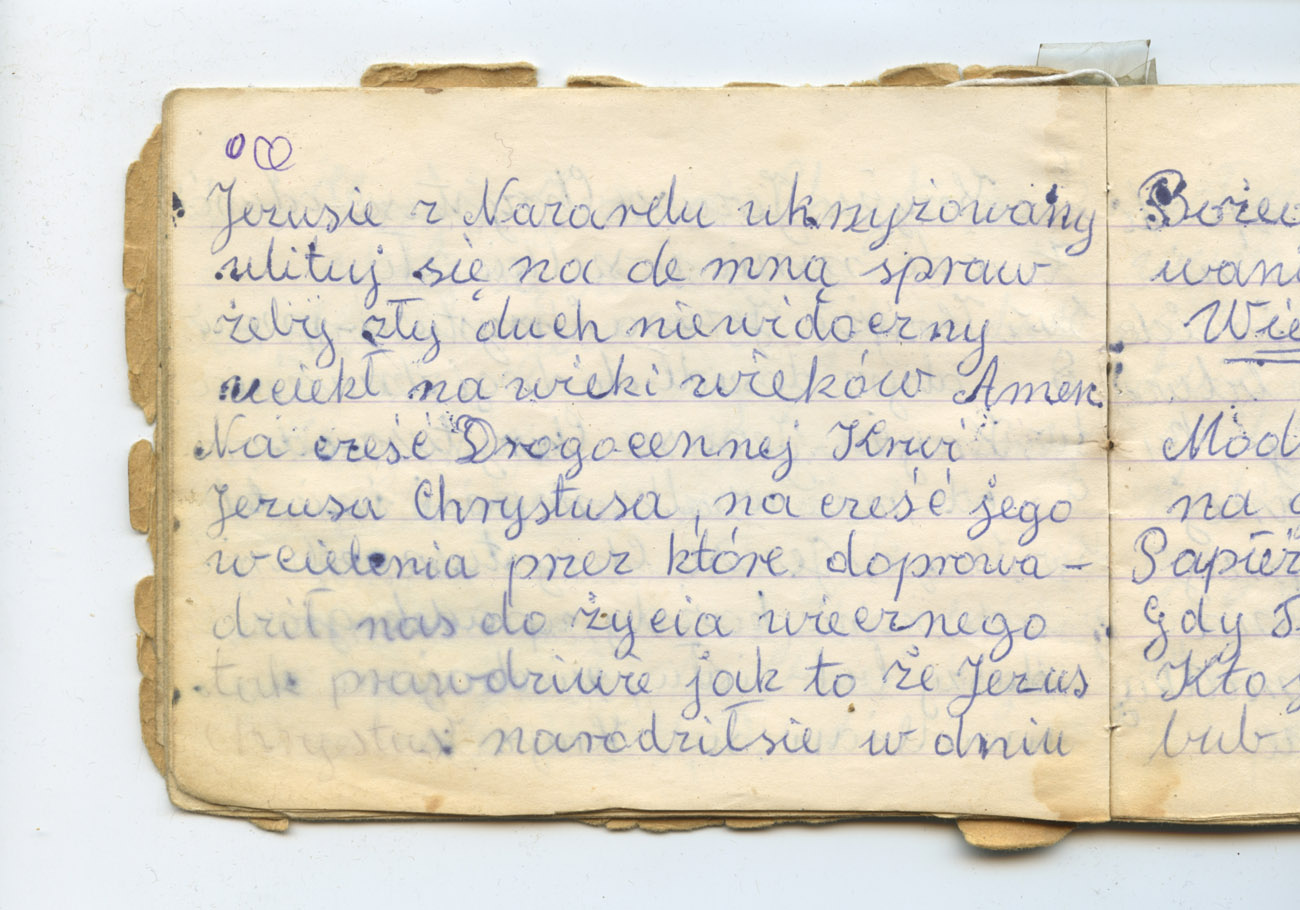 Jezusie z Nazaredu ukrzyżowany
ulituj się na de mną spraw
żeby zły duch niewidoczny
uciekł na wieki wieków Amen.
Na cześć Drogocennej Krwi
Jezusa Chrystusa, na cześć jego
wcielenia przez które doprowa-
dził nas do życia wiecznego
tak prawdziwie jak to że Jezus
Chrystus narodziłsie w dniu
Bożeo
wani
Wie
Mod
na
Papież
Gdy
Kto
lub